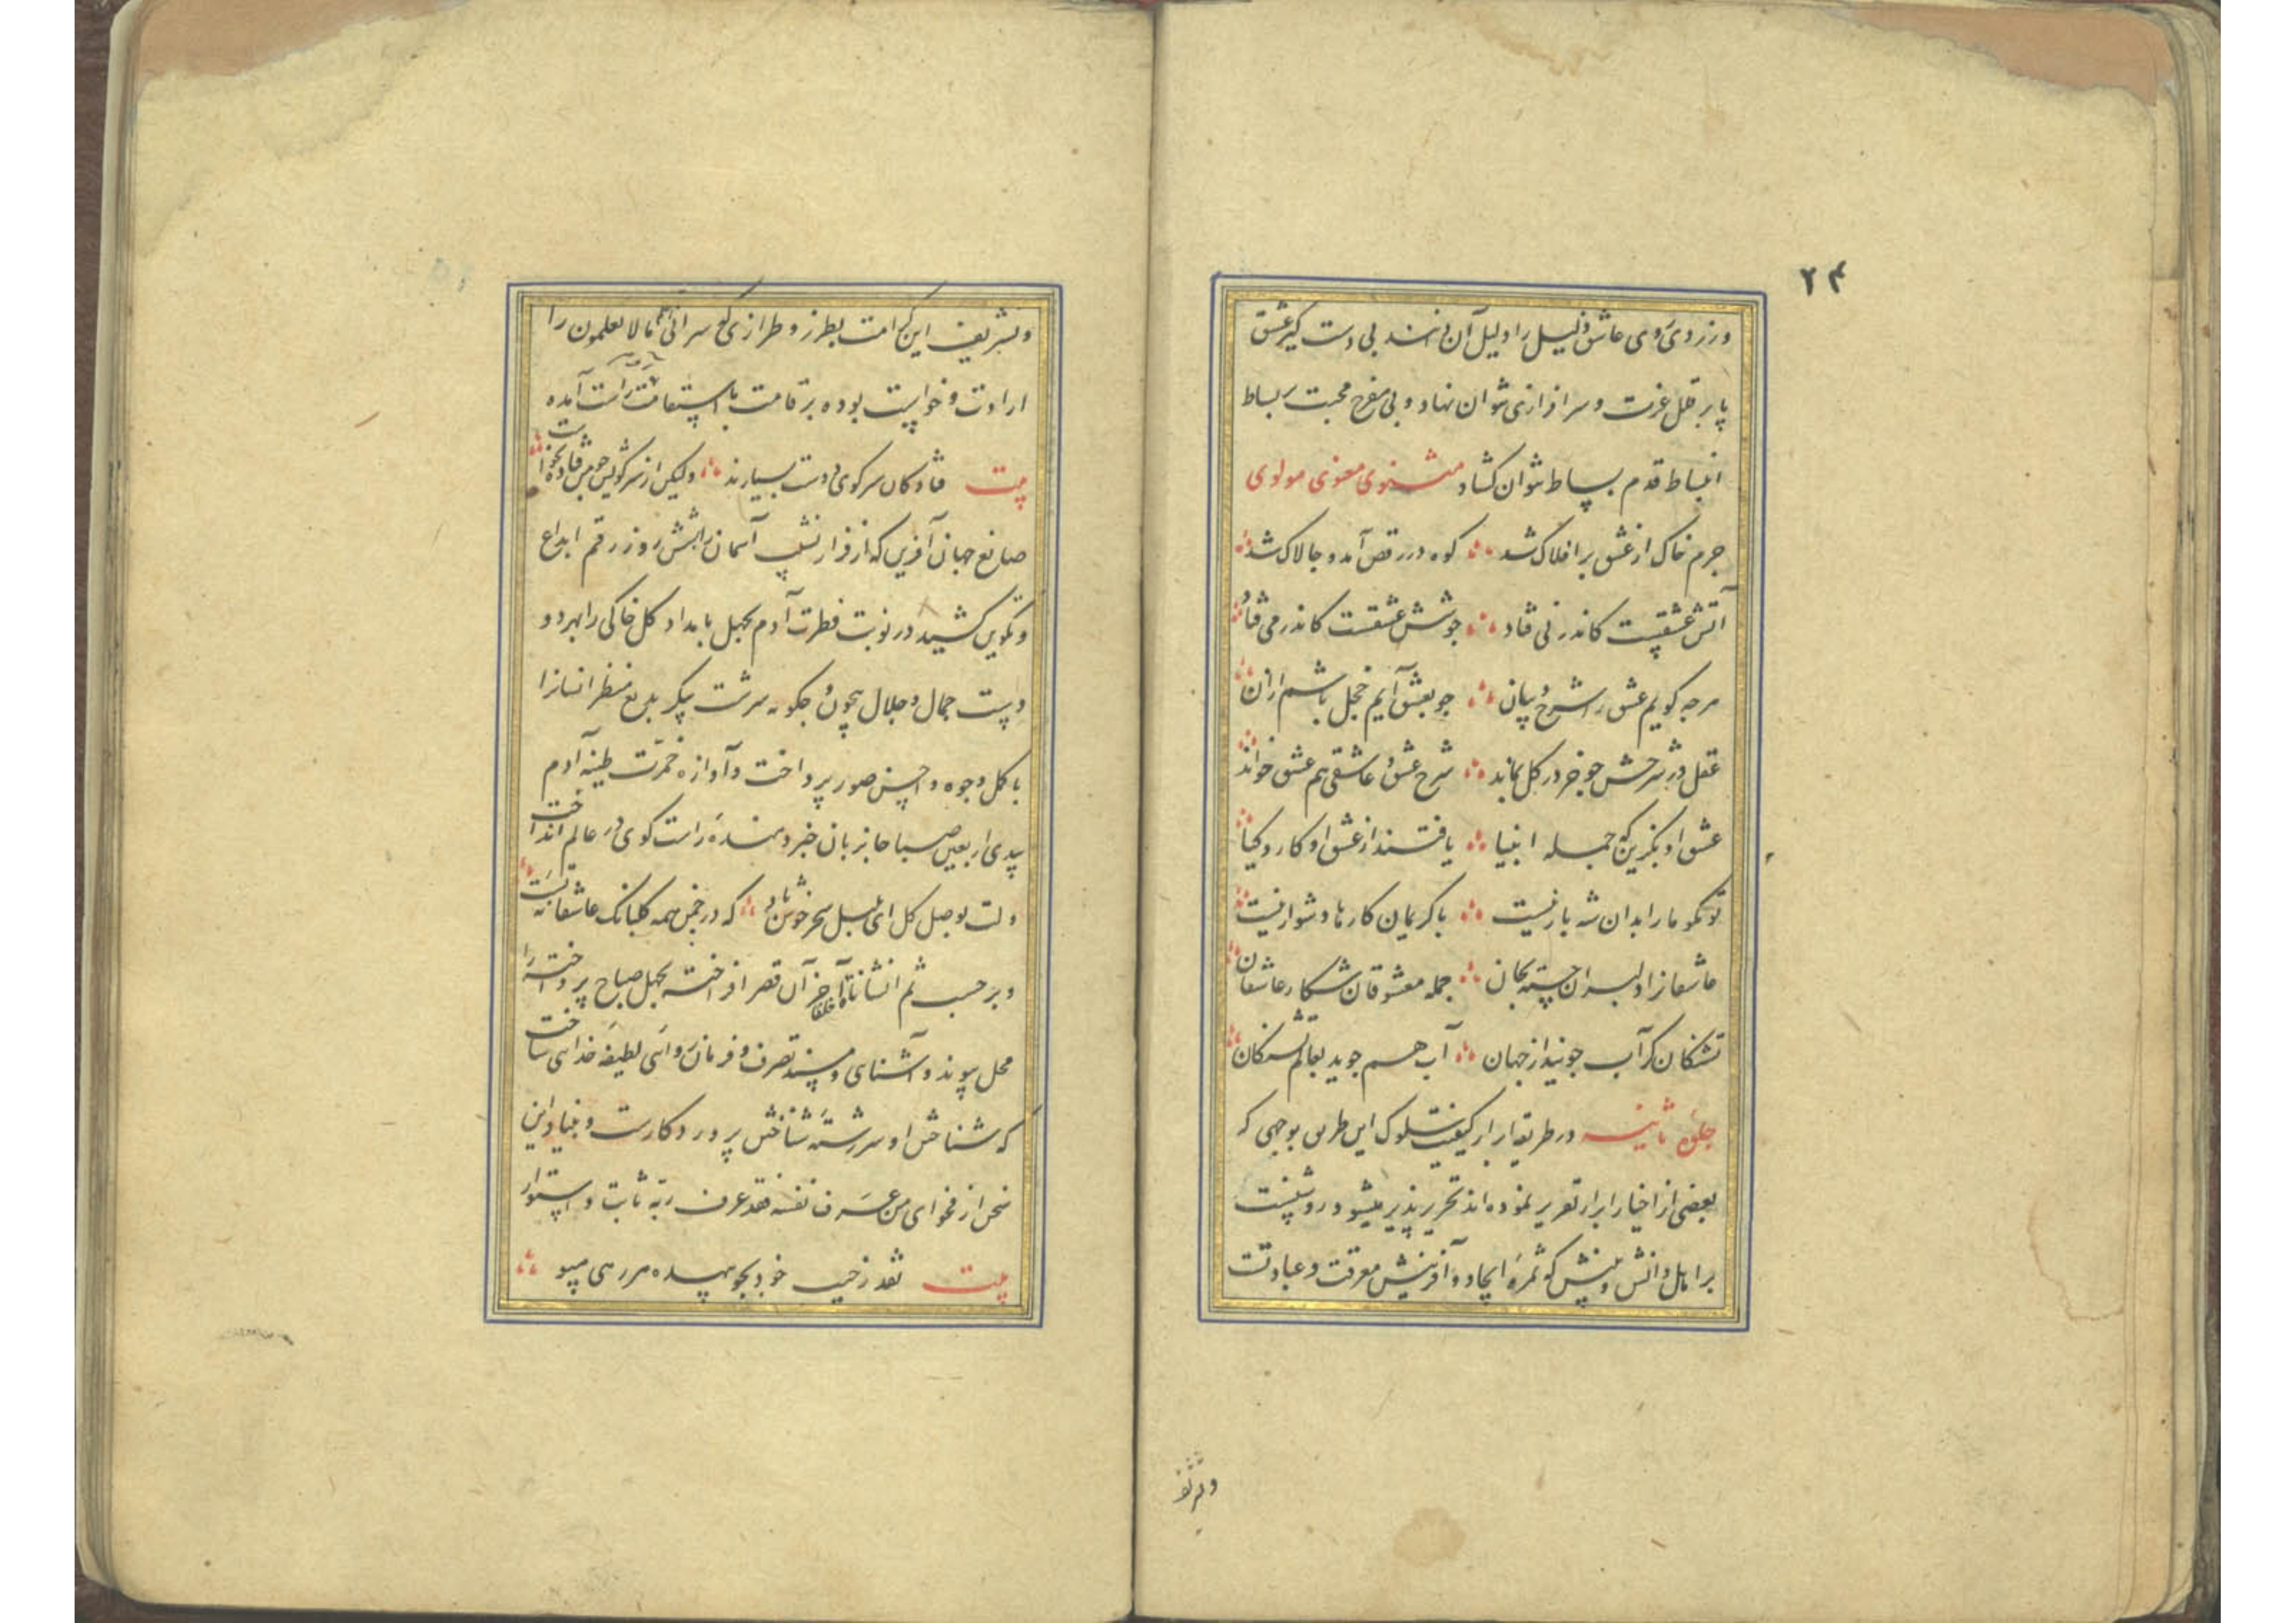 ۲۴
وز زردی روی عاشق ذلیل را دلیل آن دانند بی دست کیر عشق
پا بر قلل عزت و سرافرازی نتوان نهاد و بی مفرح محبت بساط
انبساط قدم بساط نتوان کشاد مثنوی معنوی مولوی
جرم خاک از عشق بر افلاک شد کوه در رقص آمد و چالاک شد
آتش عشقیست کاندر نی فتاد جوشش عشقست کاندر می فتاد
هرچه کویم عشق را شرح و بیان چو بعشق آیم خجل باشم ازان
عقل در شرحش چو خر در کل بماند شرح عشق و عاشقی هم عشق خواند
عشق او بکزین که جمله انبیا یافتند از عشق او کار و کیا
تو مکو ما را بدان شه بار نیست با کریمان کارها دشوار نیست
عاشقانرا دلبران جسته بجان جمله معشوقان شکار عاشقان
تشنکان کر آب جویند از جهان آب هم جوید بعالم تشنکان
جلوه ثانیه در طریقه ابرار کیفیت سلوک این طریق بوجهی که
بعضی از اخیار ابرار تقریر نموده اند تحریر پذیر میشود روشنست
بر اهل دانش و بینش که ثمره ایجاد و آفرینش معرفت و عبادتست
وتشریف
وتشریف این کرامت بطرز و طرازی که سر انی اعلم ما لا تعلمون را
ارادت و خواست بوده بر قامت با استقامت راست آمده
بیت فتادکان سر کوی دوست بسیارند ولیکن از سر کویش چو من فتاده نخواست
صانع جهان آفرین که از فراز نشیب آسمان را بشش روز رقم ابداع
و تکوین کشید در نوبت فطرت آدم بچهل بامداد کل خاکی را بهر دو
دست جمال و جلال بیچون و چکونه سرشت پیکر بدیع منظر انسانرا
باکمل وجوه و احسن صور پرداخت و آوازه خمرت طینة آدم
بیدی اربعین صباحا بزبان خبر دهنده راست کوی در عالم انداخت
دلت بوصل کل ای بلبل سحر خوش باد که در چمن همه کلبانک عاشقانه تست
و بر حسب ثم انشاناه خلقا آخر آن قصر افراخته بچهل صباح پرداخته را
محل پیوند و آشنای و مسند تصرف و فرمان روائی لطیفه خدایی ساخت
که شناختن او سررشته شناختن پروردکارست و بنیاد این
سخن از فحوای من عرف نفسه فقد عرف ربه ثابت و استوار
بیت نقد زجیب خود بجو بیهده هر رهی مپو